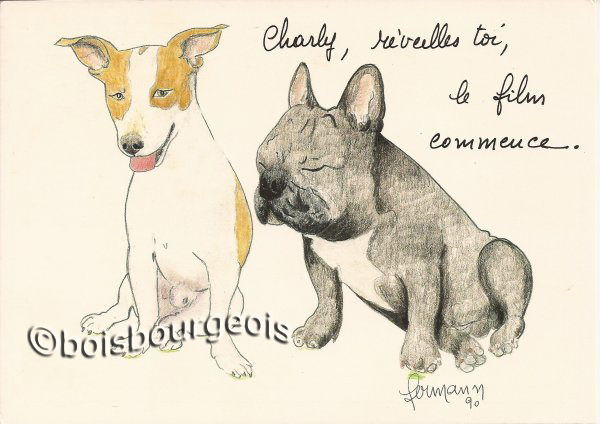 Charly, réveilles toi,
le film
commence.
©boisbourgeois
Formann
90